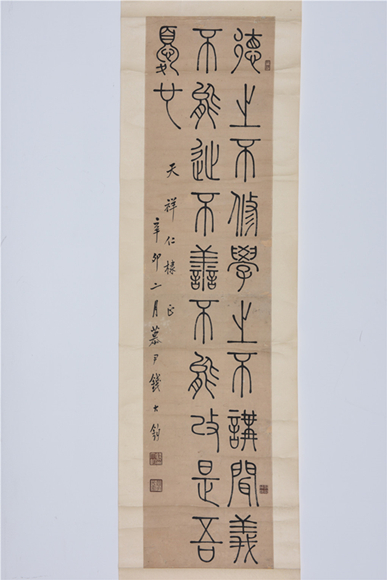 德之不修學之不講聞義
不能徙不善不能改是吾
憂也
天祥仁棣正
辛卯二月慕尹錢大鈞